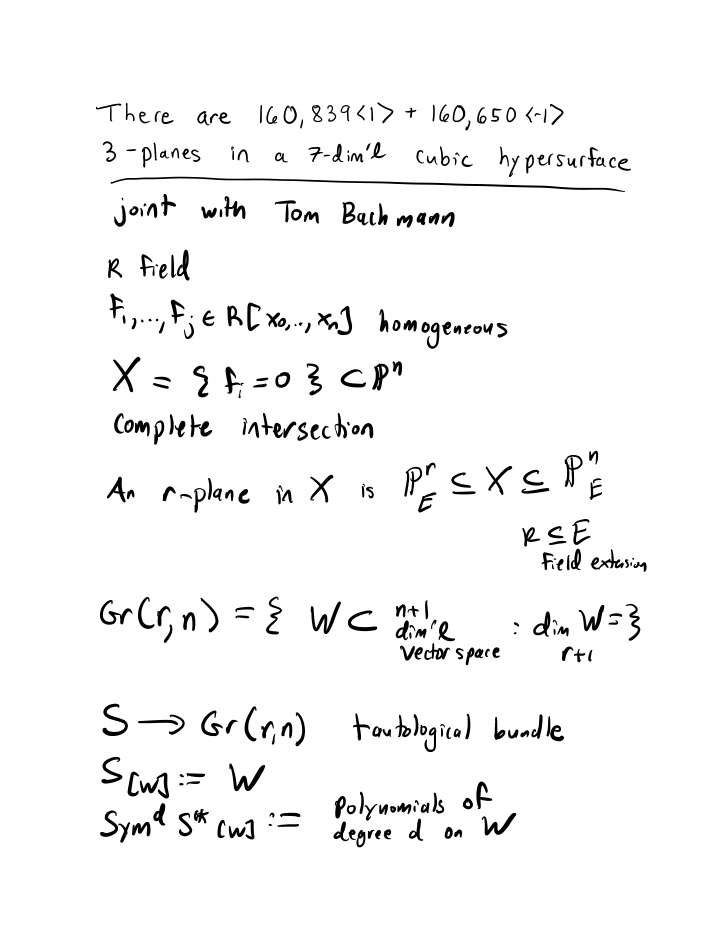 There are 160,839<1> + 160,650<-1>
3-planes in a 7-dim'l cubic hypersurface
joint with Tom Bachmann
k field
f₁,...,fⱼ ∈ k[x₀,..,xₙ] homogeneous
X = { fᵢ = 0 } ⊂ ℙⁿ
Complete intersection
An r-plane in X is ℙʳ_E ⊆ X ⊆ ℙⁿ_E
k ⊆ E
field extension
Gr(r,n) = { W ⊂ n+1 dim'l vector space : dim W = r+1 }
S → Gr(r,n) tautological bundle
S[W] := W
Symᵈ S* [W] := Polynomials of degree d on W